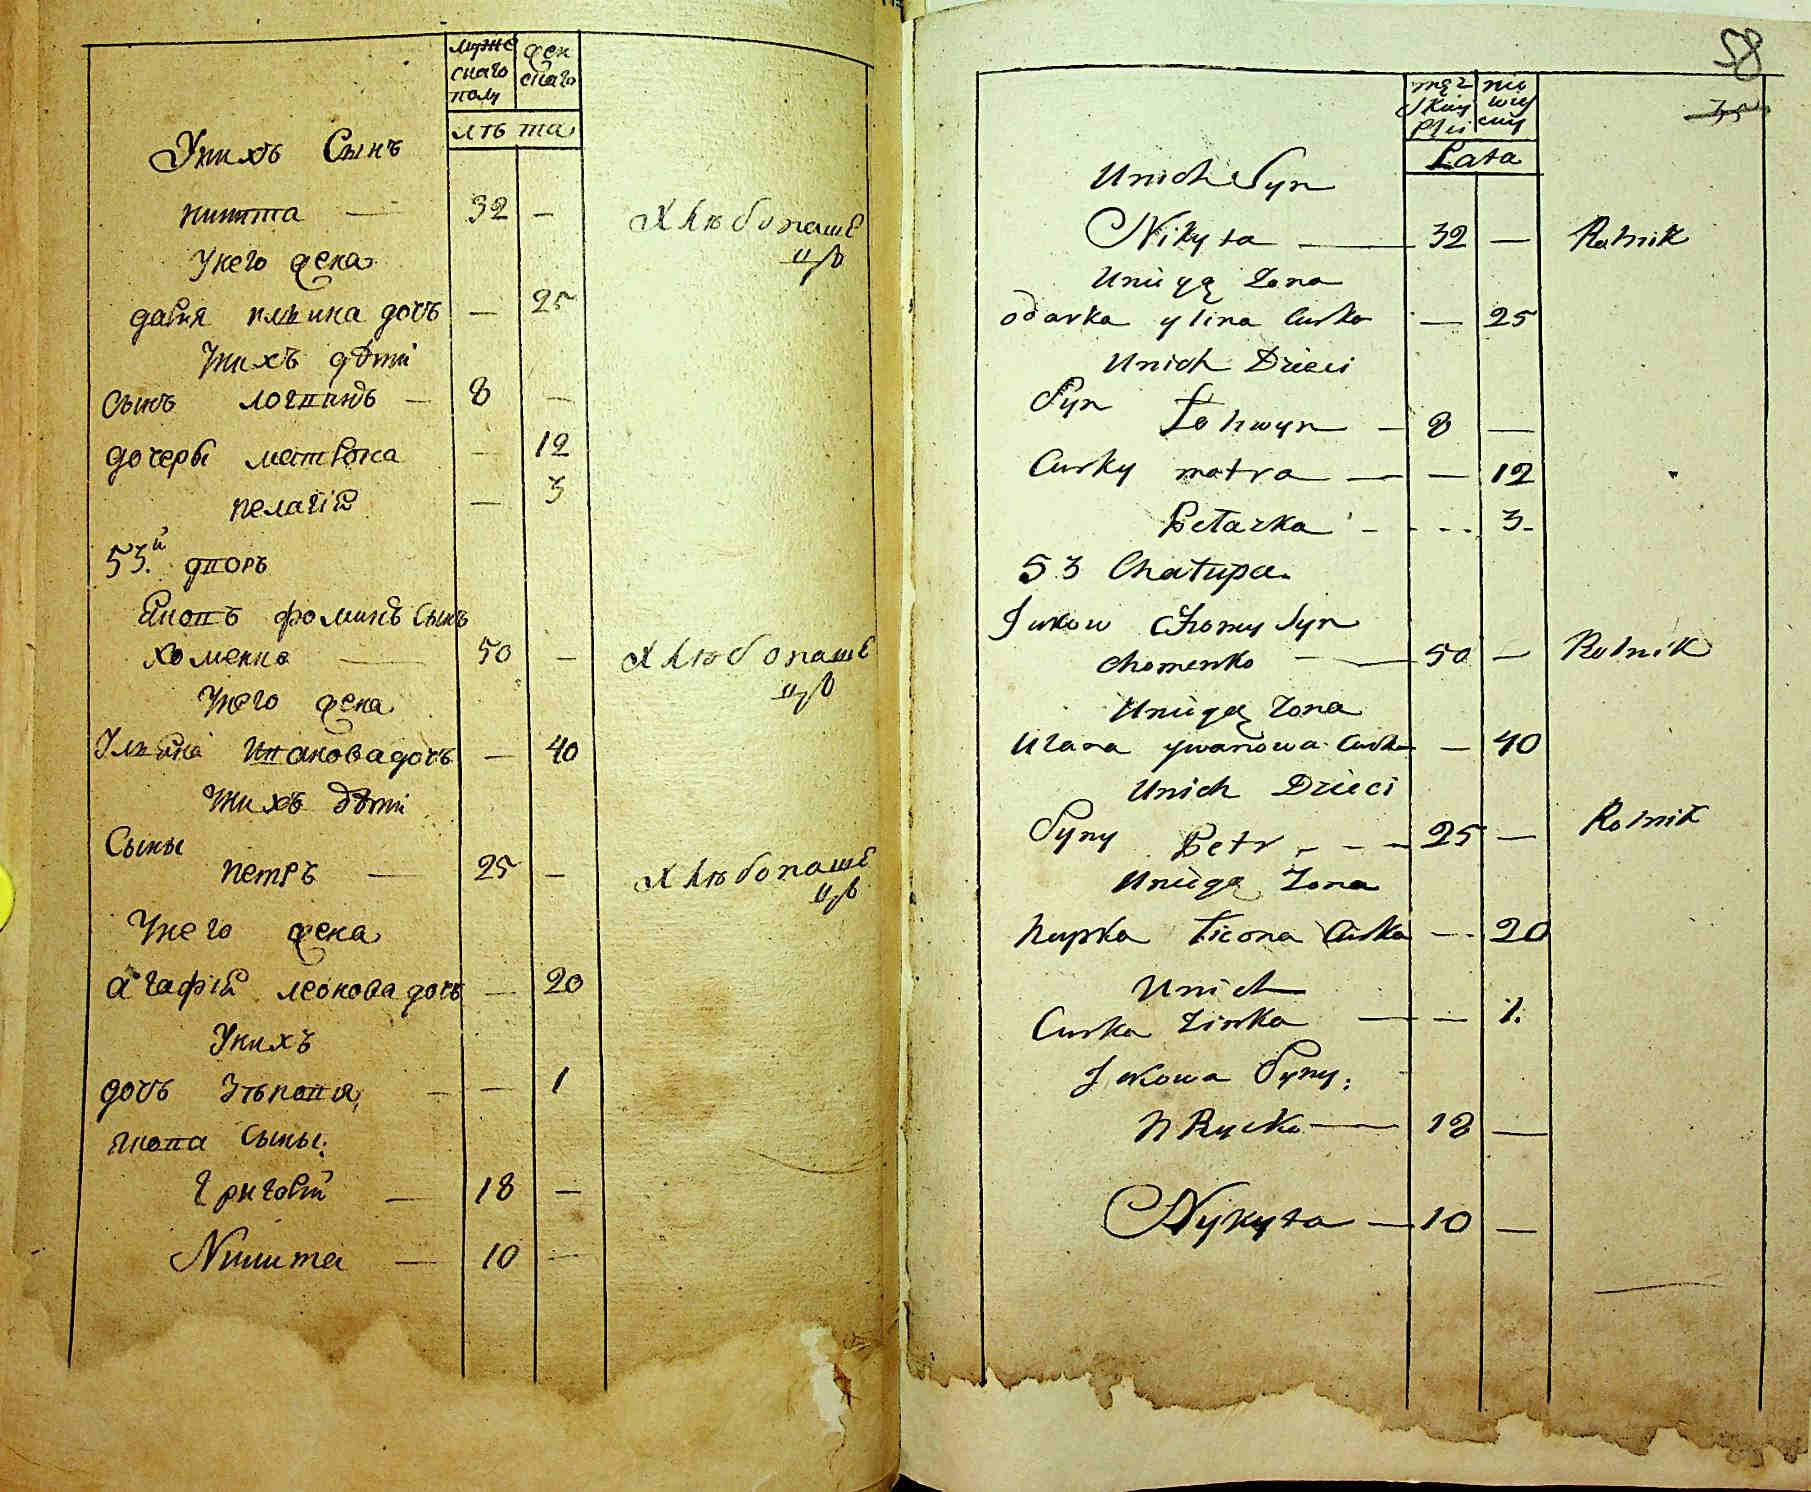 муже
скаго
полу
жен
скаго
лѣта
Унихъ Сынъ
никита — 32 —
хлѣбопаше
цъ
Унего жена
дарія илѣина дочъ — 25
Унихъ дѣти
Сынъ логвинъ — 8 —
дочеры матрона — 12
пелагія — 3
53.й дворъ
Яковъ фоминъ Сынъ
хоменко — 50 —
хлѣбопаше
цъ
Унего жена
Улѣяна Ивановадочъ — 40
Унихъ дѣти
Сыны
петръ — 25 —
хлѣбопаше
цъ
Унего жена
агафія леонова дочъ — 20
Унихъ
дочъ — 1
якова Сыны:
григорій — 18 —
Никита — 10 —
58
męz
skiey
Płci
nie
wiey
ciey
35
Lata
Unich Syn
Nikyta — 32 — Rolnik
Uniego Zona
odarka ylina Curka — 25
Unich Dzieci
Syn
Łohwyn — 8 —
Curky matra — — 12
Pełazka - - - - 3-
53 Chałupa.
Jakow Chomy Syn
chomenko — 50 — Rolnik
Uniegą Zona
Ulana ywanowa Curka — 40
Unich Dzieci
Syny Petr - - - 25 — Rolnik
Uniegą Zona
hapka Licona Curka — 20
Unich
Curka Zinka — — 1.
Jakowa Syny:
hRycko — 18 —
Nykyta — 10 —